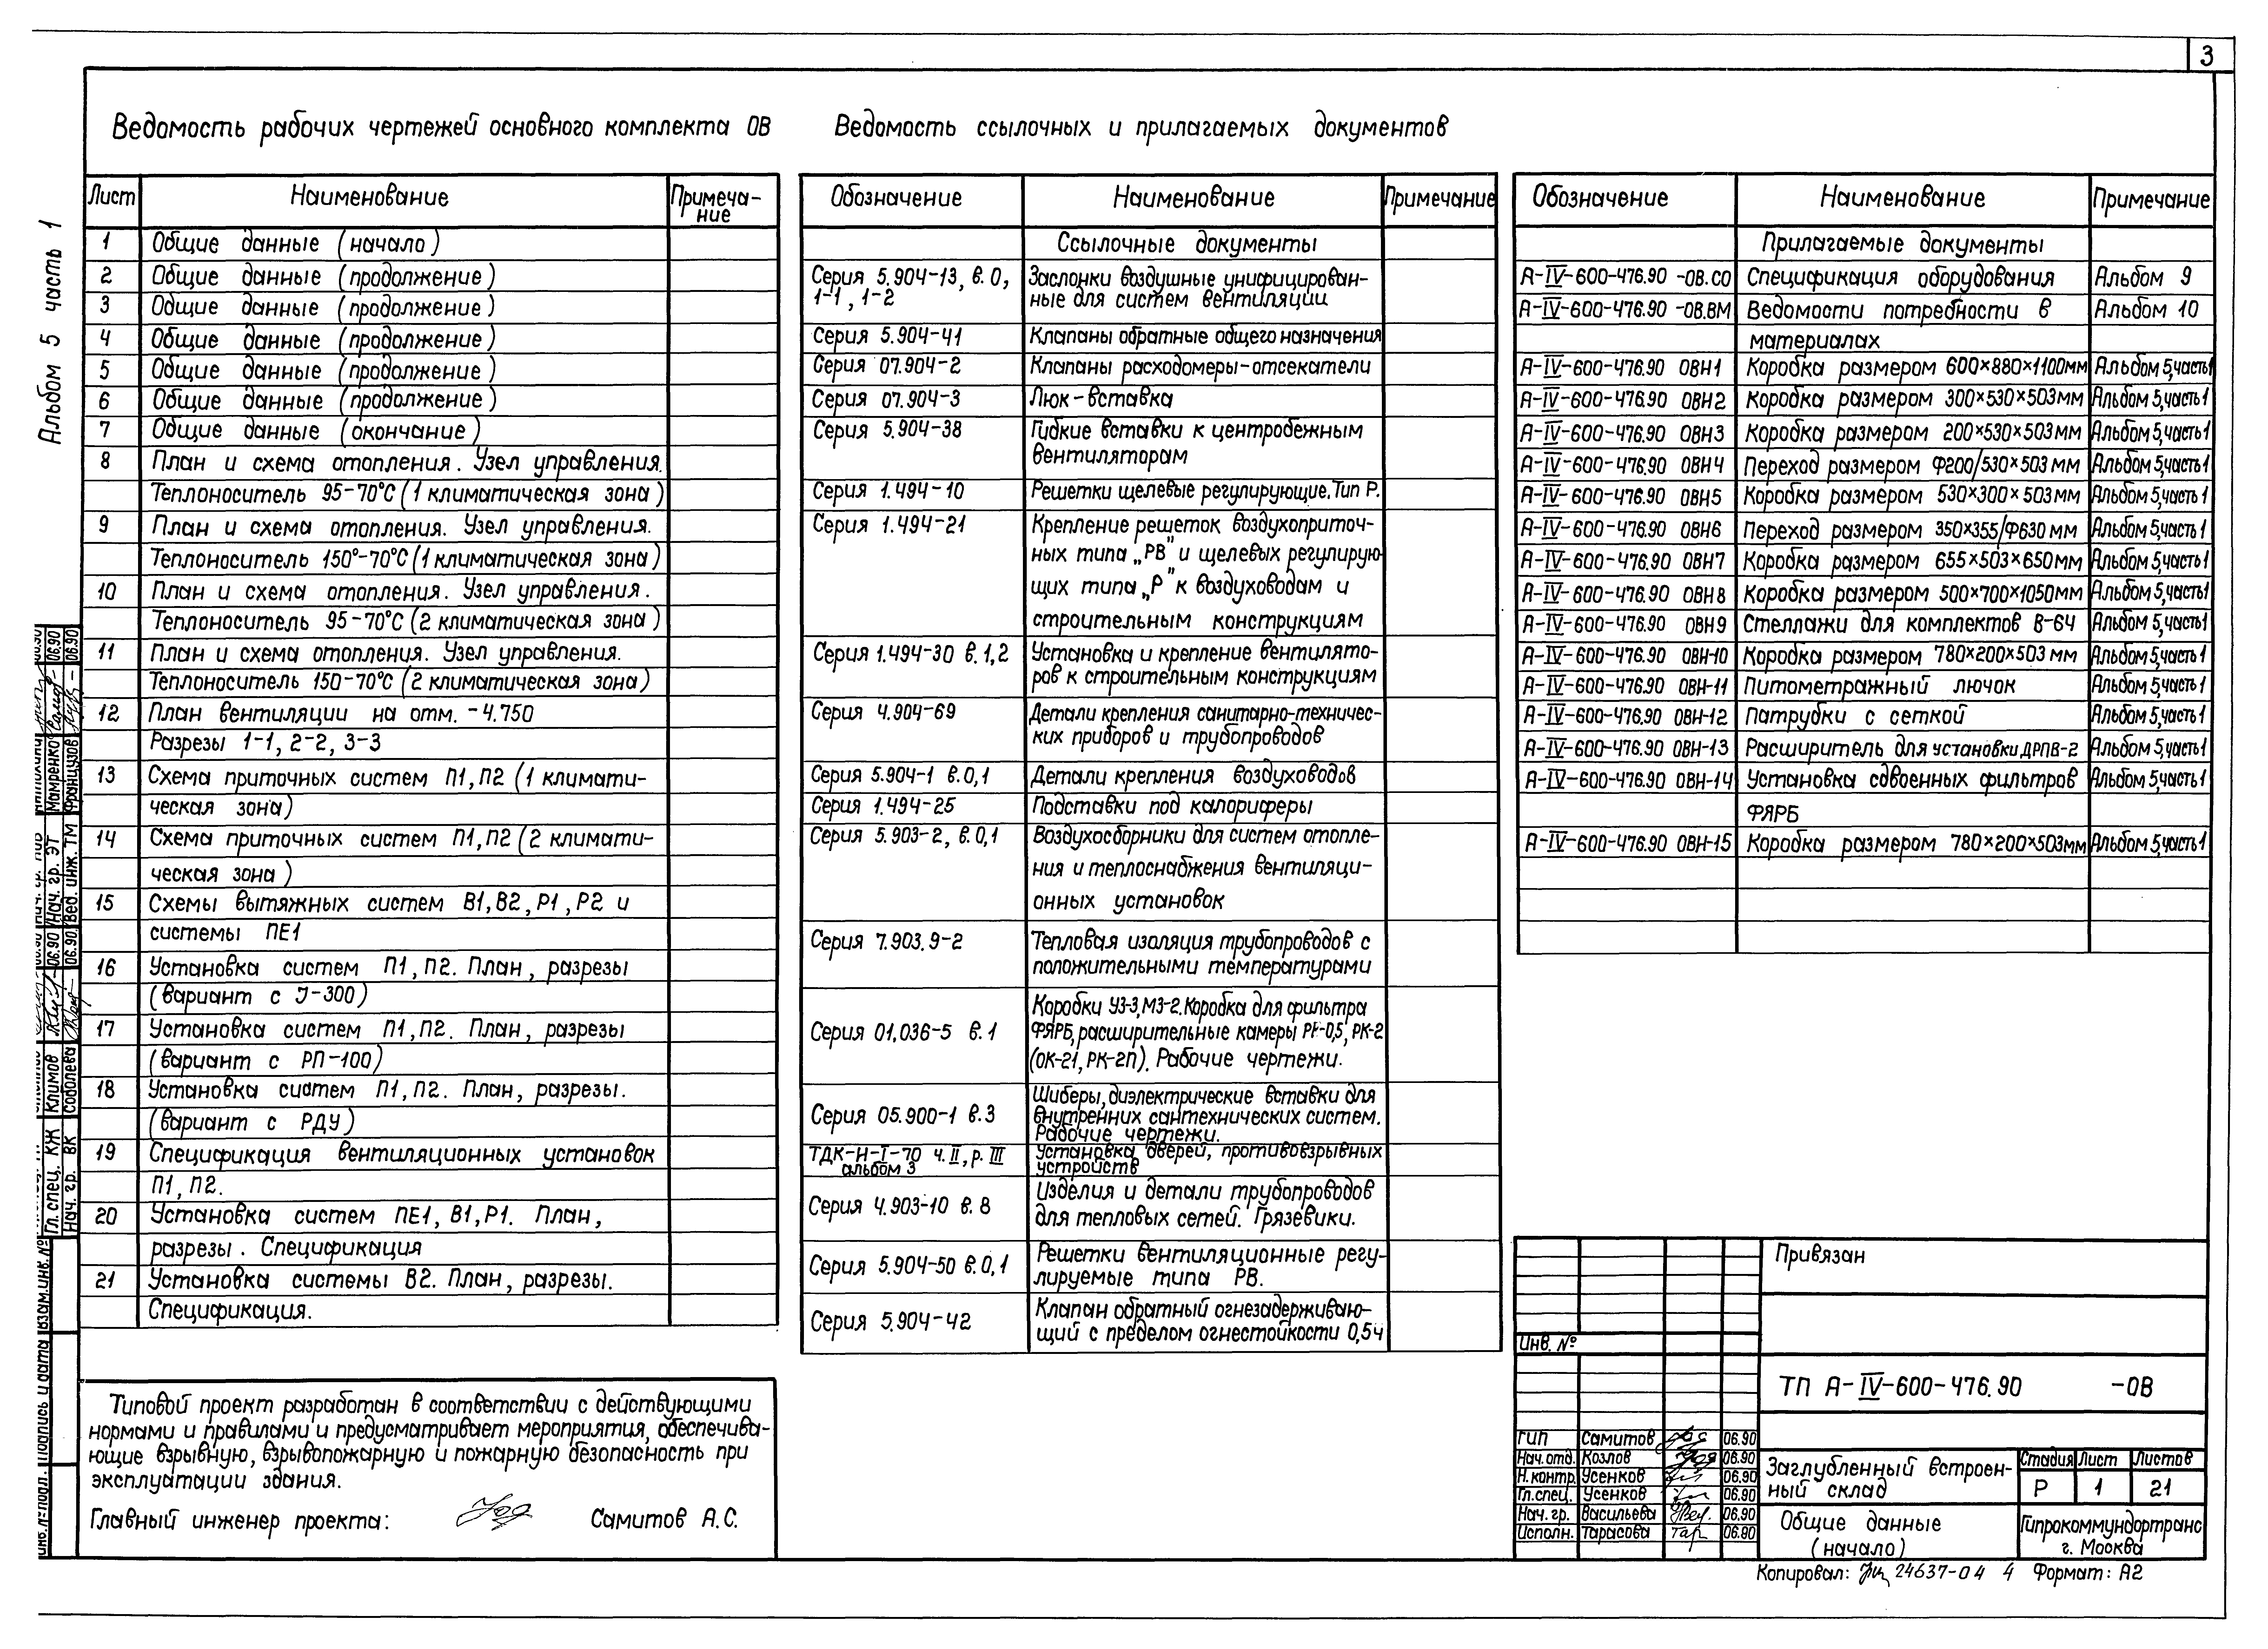 3
Ведомость рабочих чертежей основного комплекта ОВ
Лист Наименование Примеча-
ние
1 Общие данные (начало)
2 Общие данные (продолжение)
3 Общие данные (продолжение)
4 Общие данные (продолжение)
5 Общие данные (продолжение)
6 Общие данные (продолжение)
7 Общие данные (окончание)
8 План и схема отопления. Узел управления.
Теплоноситель 95-70°С (1 климатическая зона)
9 План и схема отопления. Узел управления.
Теплоноситель 150°-70°С (1 климатическая зона)
10 План и схема отопления. Узел управления.
Теплоноситель 95-70°С (2 климатическая зона)
11 План и схема отопления. Узел управления.
Теплоноситель 150-70°С (2 климатическая зона)
12 План вентиляции на отм. -4.750
Разрезы 1-1, 2-2, 3-3
13 Схема приточных систем П1, П2 (1 климати-
ческая зона)
14 Схема приточных систем П1, П2 (2 климати-
ческая зона)
15 Схемы вытяжных систем В1, В2, Р1, Р2 и
системы ПЕ1
16 Установка систем П1, П2. План, разрезы
(вариант с J-300)
17 Установка систем П1, П2. План, разрезы
(вариант с РП-100)
18 Установка систем П1, П2. План, разрезы.
(вариант с РДУ)
19 Спецификация вентиляционных установок
П1, П2.
20 Установка систем ПЕ1, В1, Р1. План,
разрезы. Спецификация
21 Установка системы В2. План, разрезы.
Спецификация.
Типовой проект разработан в соответствии с действующими
нормами и правилами и предусматривает мероприятия, обеспечива-
ющие взрывную, взрывопожарную и пожарную безопасность при
эксплуатации здания.
Главный инженер проекта: Самитов А.С.
Ведомость ссылочных и прилагаемых документов
Обозначение Наименование Примечание
Ссылочные документы
Серия 5.904-13, в.0, Заслонки воздушные унифицирован-
1-1, 1-2 ные для систем вентиляции
Серия 5.904-41 Клапаны обратные общего назначения
Серия 07.904-2 Клапаны расходомеры-отсекатели
Серия 07.904-3 Люк-вставка
Серия 5.904-38 Гибкие вставки к центробежным
вентиляторам
Серия 1.494-10 Решетки щелевые регулирующие. Тип Р.
Серия 1.494-21 Крепление решеток воздухоприточ-
ных типа „РВ" и щелевых регулирую-
щих типа „Р" к воздуховодам и
строительным конструкциям
Серия 1.494-30 в.1,2 Установка и крепление вентилято-
ров к строительным конструкциям
Серия 4.904-69 Детали крепления санитарно-техничес-
ких приборов и трубопроводов
Серия 5.904-1 в.0,1 Детали крепления воздуховодов
Серия 1.494-25 Подставки под калориферы
Серия 5.903-2, в.0,1 Воздухосборники для систем отопле-
ния и теплоснабжения вентиляци-
онных установок
Серия 7.903.9-2 Тепловая изоляция трубопроводов с
положительными температурами
Коробки УЗ-3, МЗ-2. Коробка для фильтра
Серия 01.036-5 в.1 ФЯРБ, расширительные камеры РК-0,5, РК-2
(ОК-21, РК-2П). Рабочие чертежи.
Шиберы, диэлектрические вставки для
Серия 05.900-1 в.3 внутренних сантехнических систем.
Рабочие чертежи.
ТДК-Н-I-70 ч.II, р.III Установка дверей, противовзрывных
альбом 3 устройств
Серия 4.903-10 в.8 Изделия и детали трубопроводов
для тепловых сетей. Грязевики.
Серия 5.904-50 в.0,1 Решетки вентиляционные регу-
лируемые типа РВ.
Серия 5.904-42 Клапан обратный огнезадерживаю-
щий с пределом огнестойкости 0,5ч
Обозначение Наименование Примечание
Прилагаемые документы
А-IV-600-476.90 -ОВ.СО Спецификация оборудования Альбом 9
А-IV-600-476.90 -ОВ.ВМ Ведомости потребности в Альбом 10
материалах
А-IV-600-476.90 ОВН1 Коробка размером 600×880×1100мм Альбом 5, часть 1
А-IV-600-476.90 ОВН2 Коробка размером 300×530×503мм Альбом 5, часть 1
А-IV-600-476.90 ОВН3 Коробка размером 200×530×503мм Альбом 5, часть 1
А-IV-600-476.90 ОВН4 Переход размером Ф200/530×503мм Альбом 5, часть 1
А-IV-600-476.90 ОВН5 Коробка размером 530×300×503мм Альбом 5, часть 1
А-IV-600-476.90 ОВН6 Переход размером 350×355/Ф630 мм Альбом 5, часть 1
А-IV-600-476.90 ОВН7 Коробка размером 655×503×650мм Альбом 5, часть 1
А-IV-600-476.90 ОВН8 Коробка размером 500×700×1050мм Альбом 5, часть 1
А-IV-600-476.90 ОВН9 Стеллажи для комплектов В-64 Альбом 5, часть 1
А-IV-600-476.90 ОВН-10 Коробка размером 780×200×503 мм Альбом 5, часть 1
А-IV-600-476.90 ОВН-11 Питометражный лючок Альбом 5, часть 1
А-IV-600-476.90 ОВН-12 Патрубки с сеткой Альбом 5, часть 1
А-IV-600-476.90 ОВН-13 Расширитель для установки ДРПВ-2 Альбом 5, часть 1
А-IV-600-476.90 ОВН-14 Установка сдвоенных фильтров Альбом 5, часть 1
ФЯРБ
А-IV-600-476.90 ОВН-15 Коробка размером 780×200×503мм Альбом 5, часть 1
Привязан
Инв. №
ТП А-IV-600-476.90 -ОВ
ГИП Самитов 06.90
Нач.отд. Козлов 06.90
Н.контр. Усенков 06.90
Гл.спец. Усенков 06.90
Нач.гр. Васильева 06.90
Исполн. Тарасова 06.90
Заглубленный встроен-
ный склад
Стадия Лист Листов
Р 1 21
Общие данные
(начало)
Гипрокоммундортранс
г. Москва
Копировал: 24637-04 4 Формат: А2
Альбом 5 часть 1
Мамренко 06.90
Французов 06.90
Нач. гр. ЭТ
Вед. инж. ТМ
Гл. спец. КЖ Климов 06.90
Нач. гр. ВК Соболева 06.90
Взам.инв.№
Подпись и дата
Инв.№ подл.